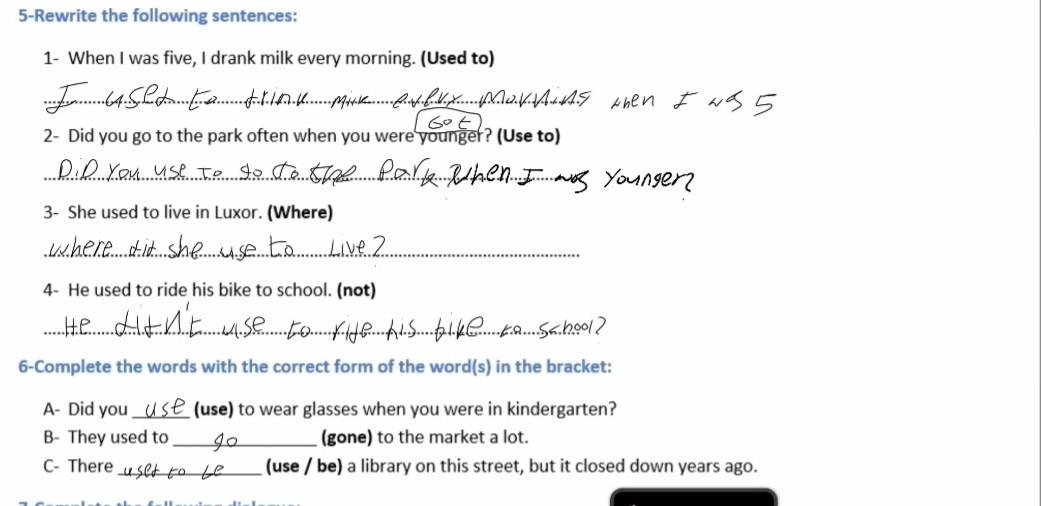 5-Rewrite the following sentences:
1- When I was five, I drank milk every morning. (Used to)
I used to drink milk every morning when I was 5
Got
2- Did you go to the park often when you were younger? (Use to)
DiD You use To go to the Park When I was Younger?
3- She used to live in Luxor. (Where)
where did she use to Live?
4- He used to ride his bike to school. (not)
He didn't use to ride his bike to school?
6-Complete the words with the correct form of the word(s) in the bracket:
A- Did you use (use) to wear glasses when you were in kindergarten?
B- They used to go (gone) to the market a lot.
C- There used to be (use / be) a library on this street, but it closed down years ago.